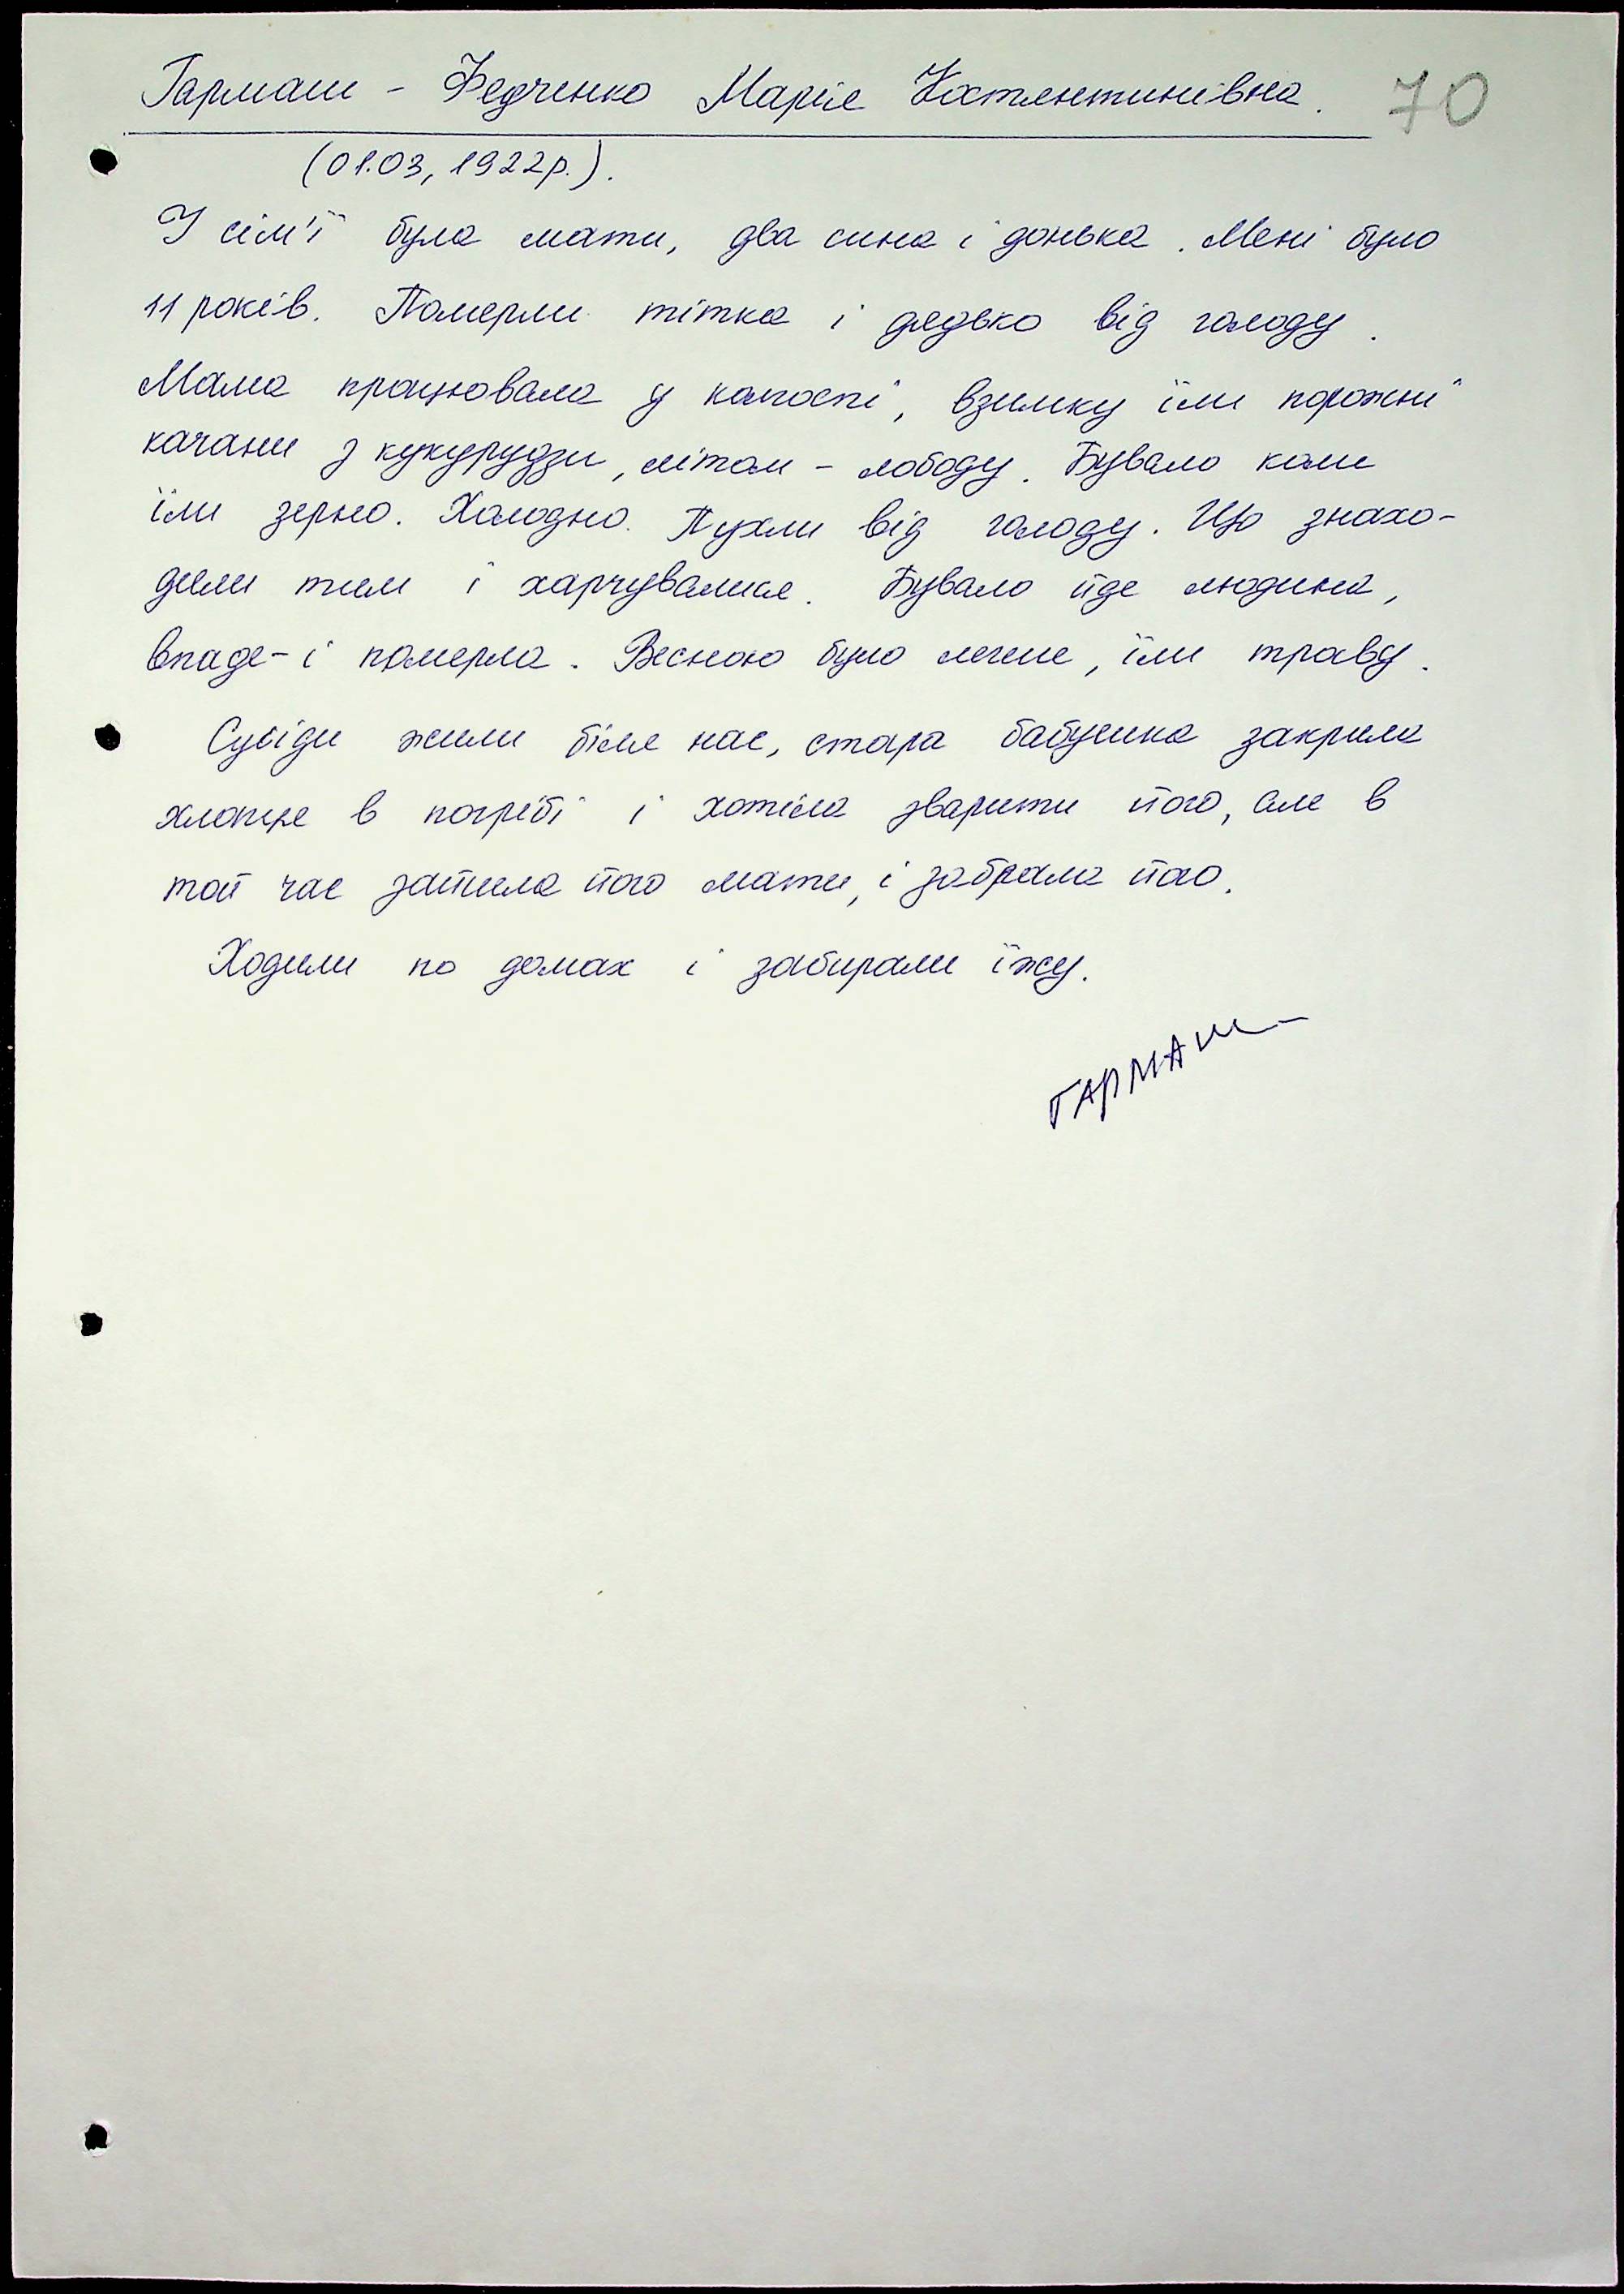 Гармаш - Федченко Марія Костянтинівна. 70
(01.03, 1922р.).
У сім'ї була мати, два сина і донька. Мені було
11 років. Померли тітка і дядько від голоду.
Мама працювала у колгоспі, взимку їли порожні
качани з кукурудзи, літом - лободу. Бувало коли
їли зерно. Холодно. Пухли від голоду. Що знахо-
дили тим і харчувалися. Бувало йде людина,
впаде - і померла. Весною було легше, їли траву.
Сусіди жили біля нас, стара бабушка закрила
хлопця в погрібі і хотіла зварити його, але в
той час зайшла його мати, і забрала його.
Ходили по домах і забирали їжу.
ГАРМАШ